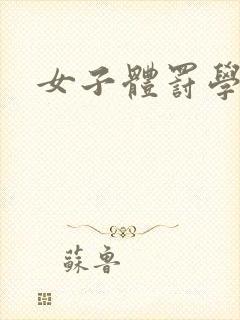 女子體罰學
蘇魯